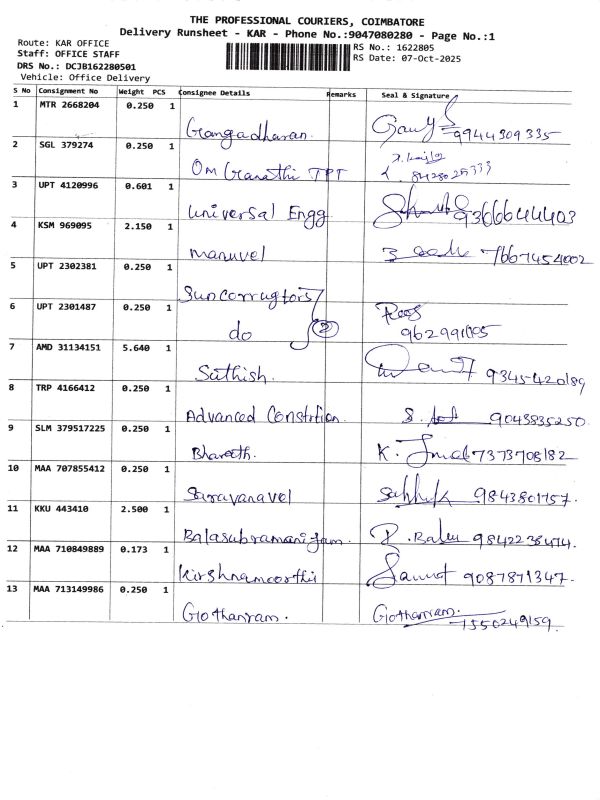 THE PROFESSIONAL COURIERS, COIMBATORE
Delivery Runsheet - KAR - Phone No.:9047080280 - Page No.:1
Route: KAR OFFICE
Staff: OFFICE STAFF
DRS No.: DCJB162280501
Vehicle: Office Delivery
RS No.: 1622805
RS Date: 07-Oct-2025
S No Consignment No Weight PCS Consignee Details Remarks Seal & Signature
1 MTR 2668204 0.250 1
Gangadharan. 9944309335
2 SGL 379274 0.250 1
Om Ganathi TPT 8428025333
3 UPT 4120996 0.601 1
Universal Engg 9366644403
4 KSM 969095 2.150 1
Manuvel 7667454002
5 UPT 2302381 0.250 1
Suncorrugtors
6 UPT 2301487 0.250 1
do 2
7 AMD 31134151 5.640 1
Sathish. 9345420189
8 TRP 4166412 0.250 1
Advanced Constrtion. 9043835250
9 SLM 379517225 0.250 1
Bharath. K. 7373708182
10 MAA 707855412 0.250 1
Saravanavel 9843801757.
11 KKU 443410 2.500 1
Balasubramaniyam. R. Balu 9842238474.
12 MAA 710849889 0.173 1
Kirshnamoorthii 9087871347.
13 MAA 713149986 0.250 1
Giothanram. Giothanram.
7550249159